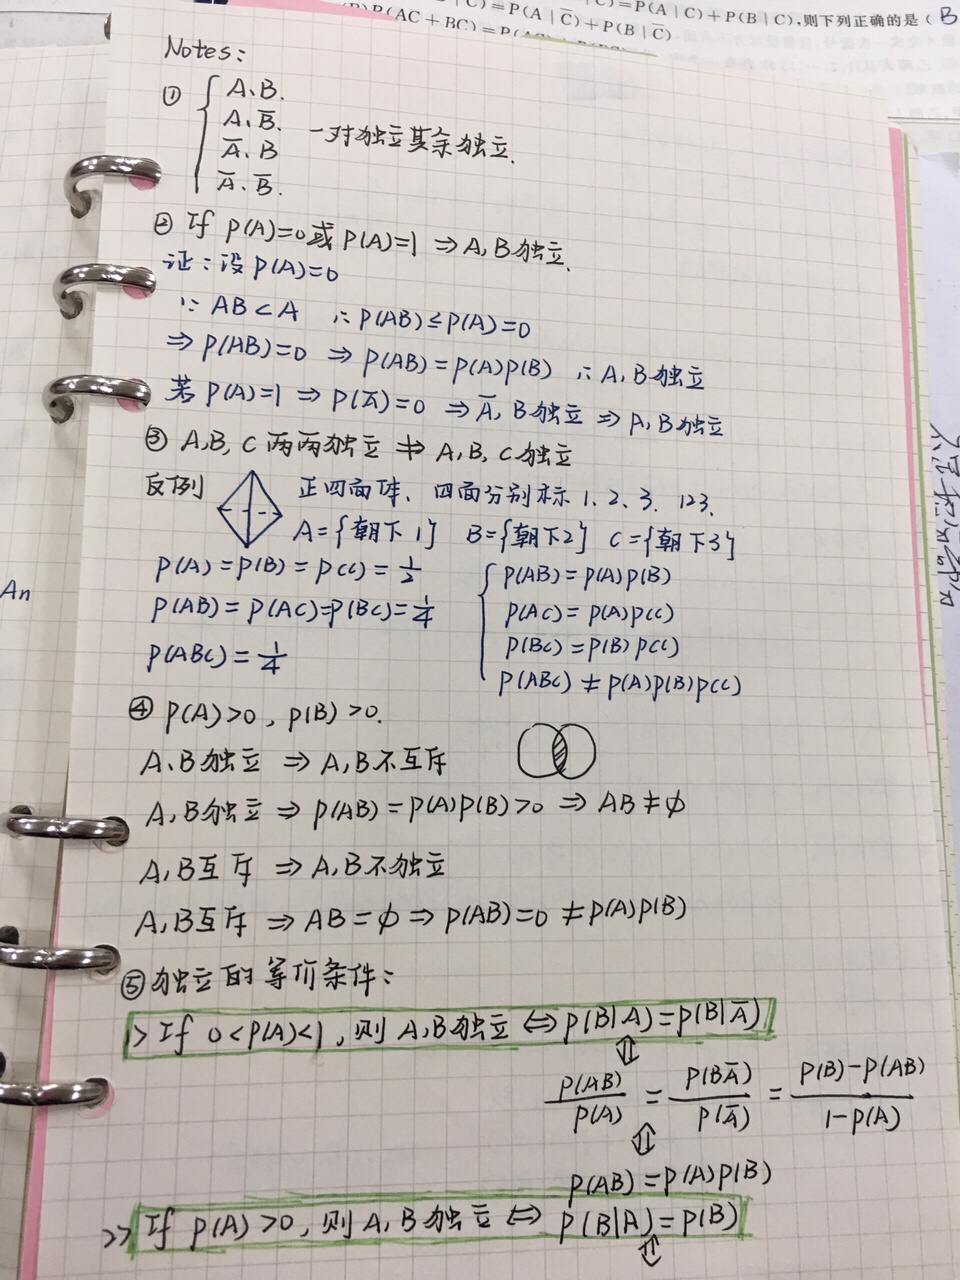 |C)=P(A|C̅)+P(B|C̅)
C)=P(A|C)+P(B|C),则下列正确的是( B
P(AC+BC)=P(AC)
Notes:
① { A、B.
A、B̅.
A̅、B
A̅、B̅.
一对独立其余独立.
② If P(A)=0或P(A)=1 ⇒ A,B独立.
证:设P(A)=0
∵ AB⊂A ∴ P(AB)≤P(A)=0
⇒ P(AB)=0 ⇒ P(AB)=P(A)P(B) ∴ A,B独立
若 P(A)=1 ⇒ P(A̅)=0 ⇒ A̅,B独立 ⇒ A,B独立
③ A,B,C两两独立 ⇏ A,B,C独立
反例 正四面体、四面分别标 1、2、3、123.
A={朝下1} B={朝下2} C={朝下3}
P(A)=P(B)=P(C)=1/2
P(AB)=P(AC)=P(BC)=1/4
P(ABC)=1/4
{ P(AB)=P(A)P(B)
P(AC)=P(A)P(C)
P(BC)=P(B)P(C)
P(ABC)≠P(A)P(B)P(C)
④ P(A)>0, P(B)>0.
A、B独立 ⇒ A,B不互斥
A,B独立 ⇒ P(AB)=P(A)P(B)>0 ⇒ AB≠ϕ
A,B互斥 ⇒ A,B不独立
A,B互斥 ⇒ AB=ϕ ⇒ P(AB)=0≠P(A)P(B)
⑤ 独立的等价条件:
1> If 0<P(A)<1,则 A,B独立 ⇔ P(B|A)=P(B|A̅)
⇕
P(AB)/P(A) = P(BA̅)/P(A̅) = P(B)-P(AB)/1-P(A)
⇕
P(AB)=P(A)P(B)
2> If P(A)>0,则 A,B独立 ⇔ P(B|A)=P(B)
⇕
An